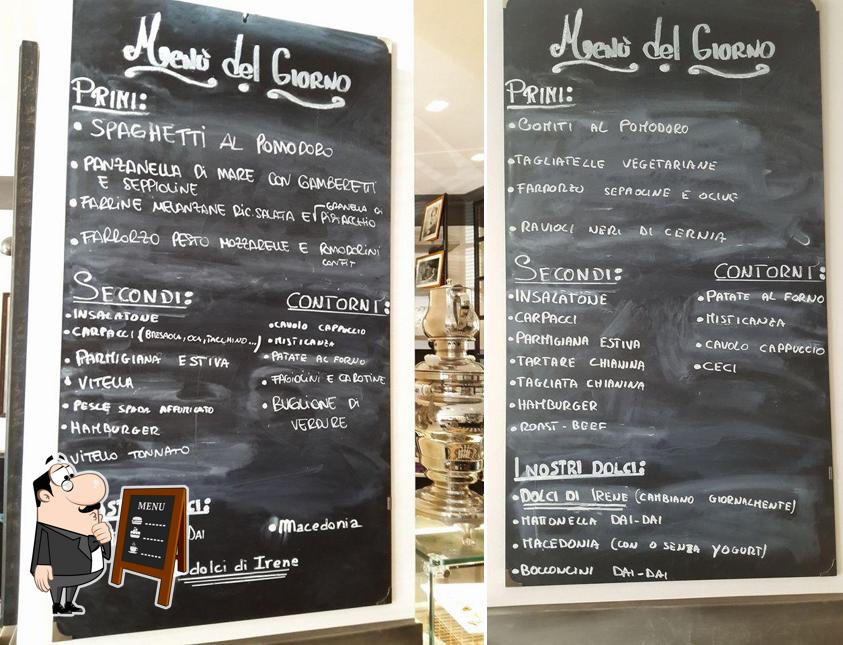 Menù del Giorno
PRIMI:
• SPAGHETTI AL POMODORO
• PANZANELLA DI MARE CON GAMBERETTI
E SEPPIOLINE
• FARRINE MELANZANE RIC. SALATA E GRANELLA DI
PISTACCHIO
• FARRORZO PESTO MOZZARELLE E POMODORINI
CONFIT
SECONDI:
• INSALATONE
• CARPACCI (BRESAOLA, OCA, TACCHINO...)
• PARMIGIANA ESTIVA
• VITELLA
• PESCE SPADA AFFUMICATO
• HAMBURGER
VITELLO TONNATO
CONTORNI:
• CAVOLO CAPPUCCIO
• MISTICANZA
• PATATE AL FORNO
• FAGIOLINI E CAROTINE
• BUGLIONE DI
VERDURE
CI:
DAI
• Macedonia
dolci di Irene
MENU
Menù del Giorno
PRIMI:
• GOMITI AL POMODORO
• TAGLIATELLE VEGETARIANE
• FARRORZO SEPPIOLINE E OLIVE
• RAVIOLI NERI DI CERNIA
SECONDI:
• INSALATONE
• CARPACCI
• PARMIGIANA ESTIVA
• TARTARE CHIANINA
• TAGLIATA CHIANINA
• HAMBURGER
• ROAST-BEEF
CONTORNI:
• PATATE AL FORNO
• MISTICANZA
• CAVOLO CAPPUCCIO
• CECI
I NOSTRI DOLCI:
• DOLCI DI IRENE (CAMBIANO GIORNALMENTE)
• MATTONELLA DAI-DAI
• MACEDONIA (CON O SENZA YOGURT)
• BOCCONCINI DAI-DAI